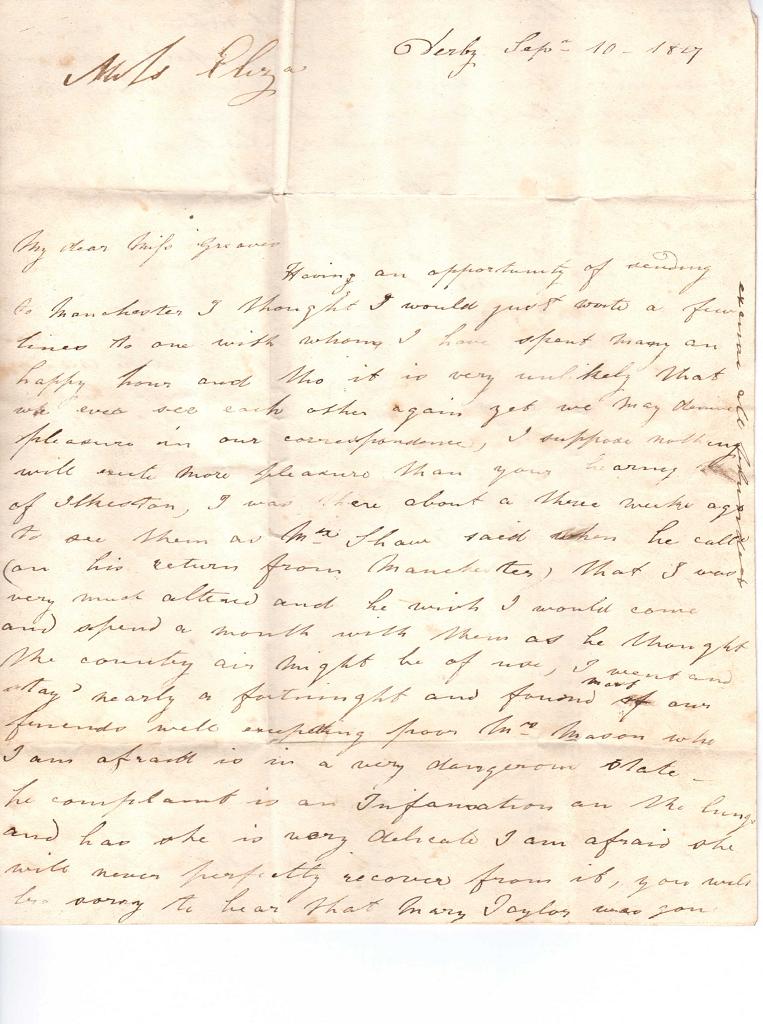 Derby Sepr 10 - 1827
Miss Eliza
My dear Miss Greaves
Having an opportunity of sending
to Manchester I thought I would just write a few
lines to one with whom I have spent many an
happy hour and tho it is very unlikely that
we ever see each other again yet we may derive
pleasure in our correspondence, I suppose nothing
will excite more pleasure than your hearing
of Ilkeston, I was there about a three weeks ago
to see them as Mr Shaw said when he call
(on his return from Manchester) that I was
very much altered and he wish I would come
and spend a month with them as he thought
the country air might be of use, I went and
stay'd nearly a fortninght and found most of our
friends well excepting poor Mrs Mason who
I am afraid is in a very dangerous state -
he complaint is an Infamation on the lungs
and has she is very delicate I am afraid she
will never perfectly recover from it, you will
be sorry to hear that Mary Taylor was gon
excuse all